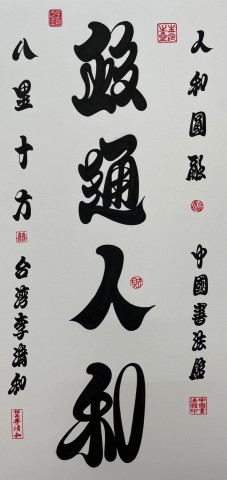 人和圓融 中國書法館
政通人和
八里十方 台灣李清和